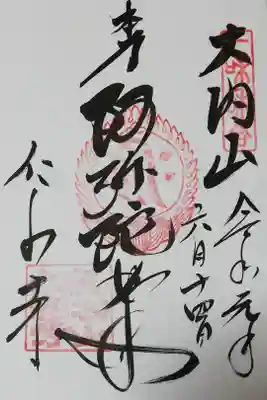 大内山
令和元年
六月十四日
奉 阿弥陀如来
仁和寺